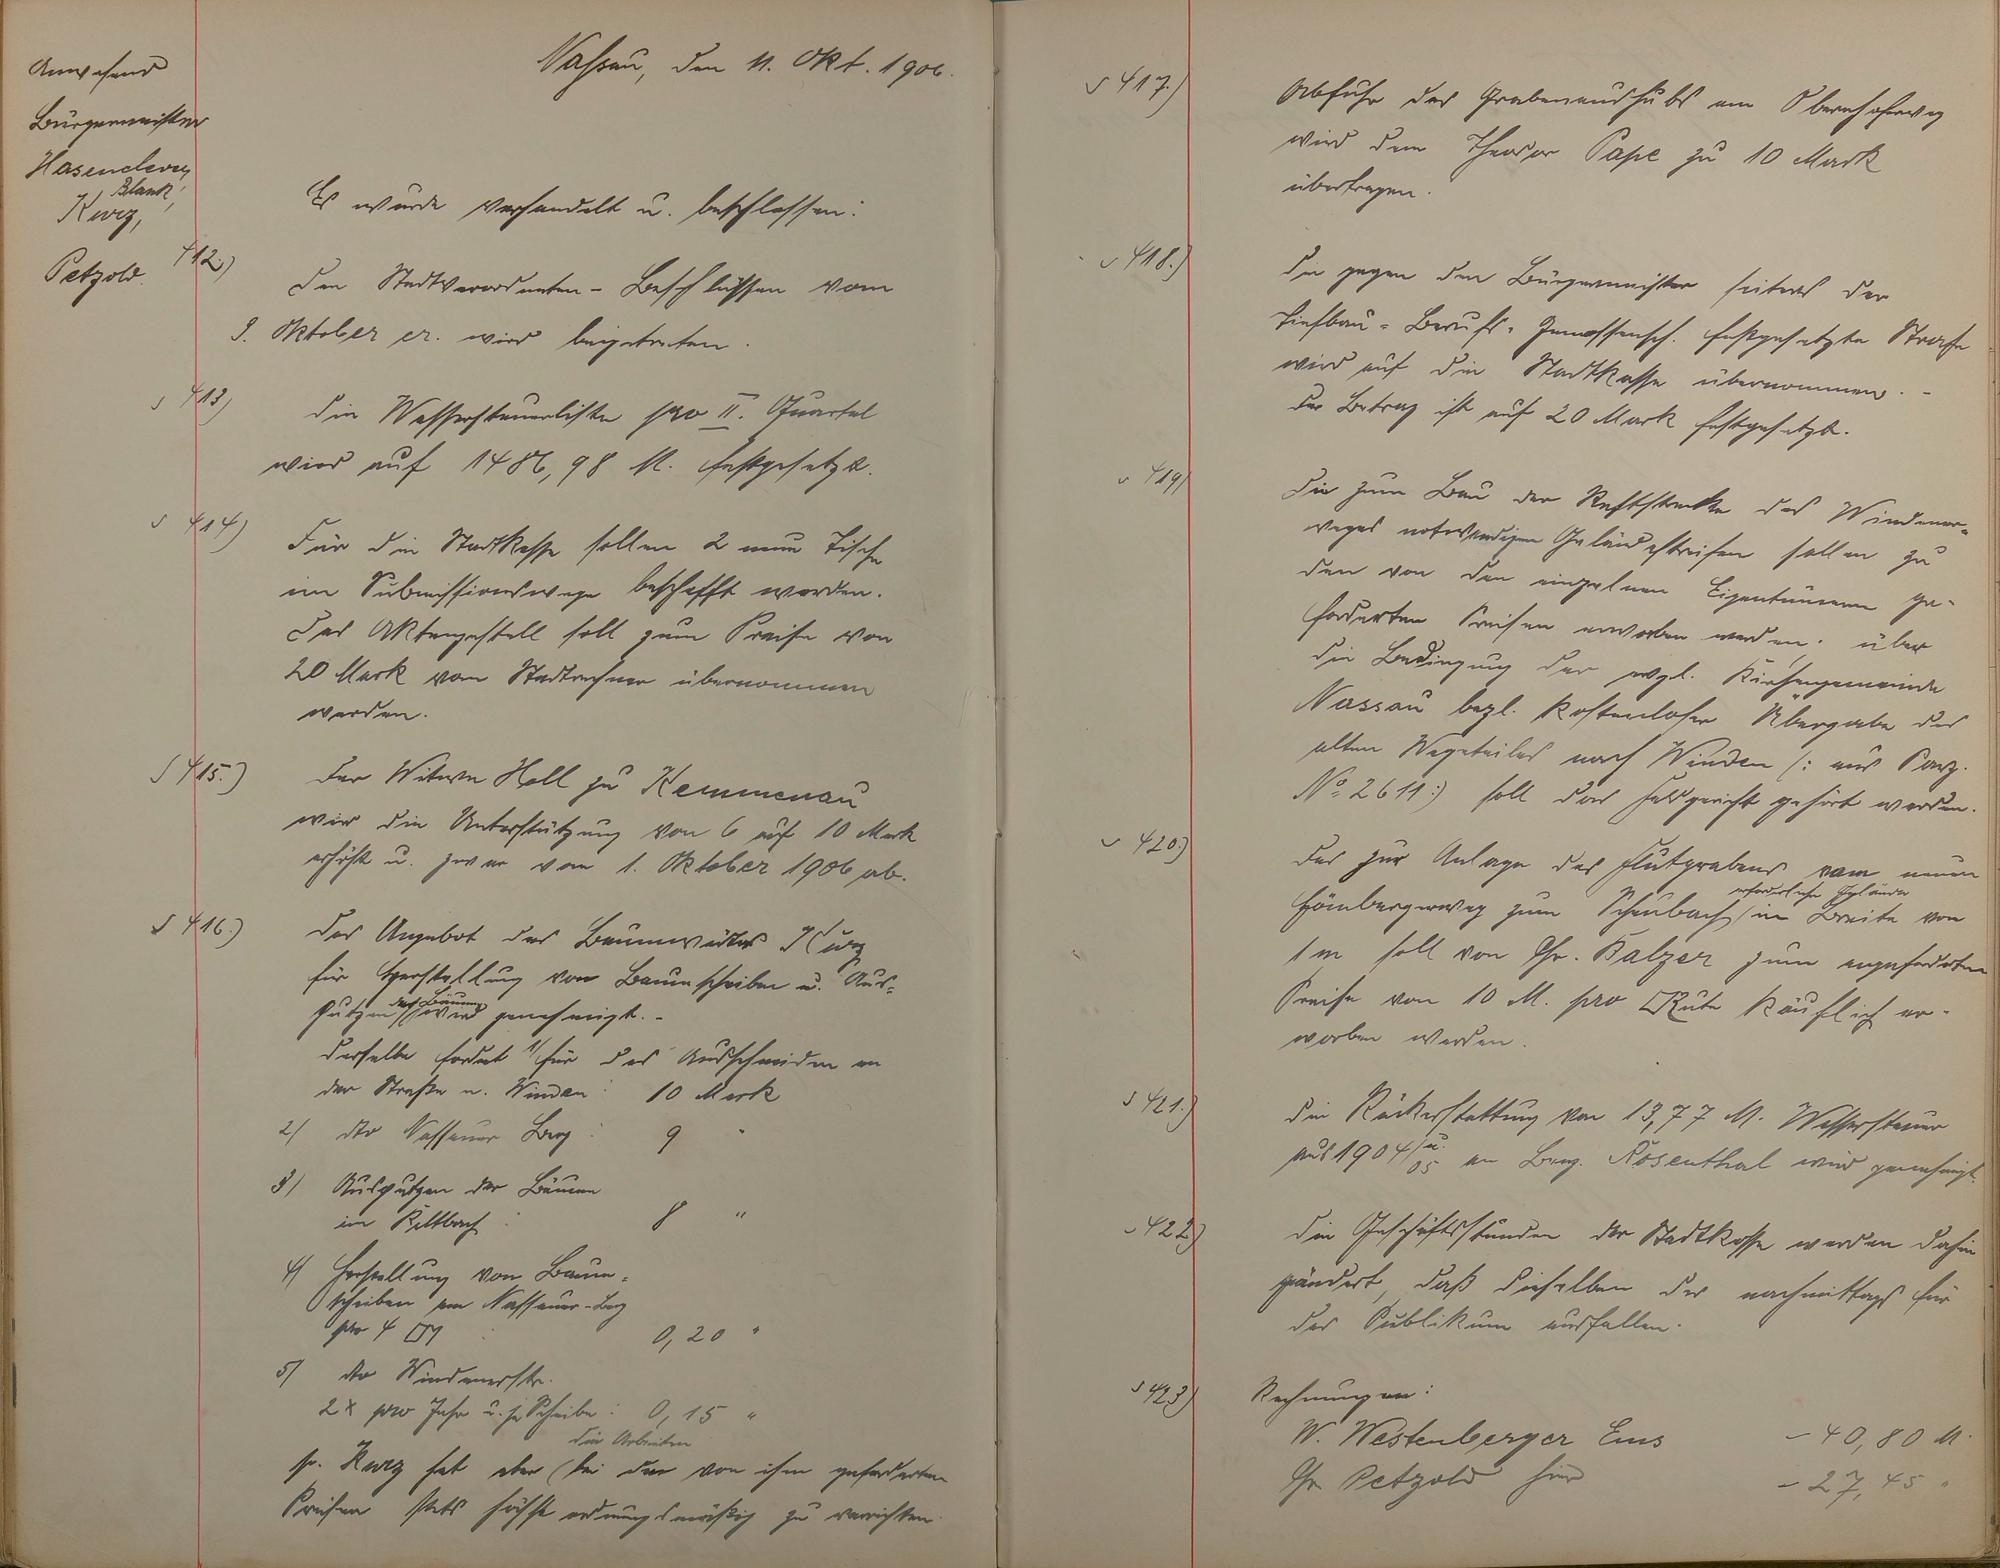 Nassau, den 11. Okt. 1906.
Anwesend
Bürgermeister
Hasenclever
Blank,
Kurz,
Petzold.
Es wurde verhandelt u. beschlossen:
412.)
Den Stadtverordneten-Beschlüssen vom
9. Oktober cr. wird beigetreten.
413)
Die Wassersteuerliste pro II. Quartal
wird auf 1486,98 M. festgesetzt.
414)
Für die Stadtkasse sollen 2 neue Tische
im Submissionswege beschafft werden.
Das Aktengestell soll zum Preise von
20 Mark vom Stadtrechner übernommen
werden.
415.)
Der Witwe Holl zu Kemmenau
wir die Unterstützung von 6 auf 10 Mark
erhöht u. zwar vom 1. Oktober 1906 ab.
416.)
Das Angebot des Baumwärters Kurz
für Herstellung von Baumscheiben u. Aus-
putzen der Bäume wird genehmigt. -
Derselbe fordert 1/ für das Ausschneiden an
der Straße n. Winden: 10 Mark
2/ dto Nassauer Berg: 9 "
3/ Ausputzen der Bäume
im Kaltbach: 8 "
4/ Herstellung von Baum-
scheiben am Nassauer-Berg
pro 4 □M : 0,20 "
5/ dto Windenerstr.
2x pro Jahr u. je Scheibe: 0,15 "
p. Kurz hat aber die Arbeiten bei den von ihm geforderten
Preisen stets ordnungsmäßig zu verrichten.
417.)
Abfuhr des Grabenaushubs am Obernhoferweg
wird dem Theodor Pape zu 10 Mark
übertragen.
418.)
Die gegen den Bürgermeister seitens der
Tiefbau-Berufs-Genossensch. festgesetzte Strafe
wird auf die Stadtkasse übernommen. -
Der Betrag ist auf 20 Mark festgesetzt.
419/
Die zum Bau der Reststrecke des Windener-
weges notwendigen Geländestreifen sollen zu
den von den einzelnen Eigentümern ge-
forderten Preisen erworben werden. über
die Bedingung der evgl. Kirchengemeinde
Nassau bezl. kostenloser Übergabe des
alten Wegeteiles nach Winden (: aus Parz.
No. 2611:) soll das Feldgericht gehört werden.
420.)
Das zur Anlage des Flutgrabens vom neuen
Hömbergerweg zum Scheubach erforderliche Gelände in Breite von
1 m soll von Chr. Balzer zum angeforderten
Preise von 10 M. pro □Rute käuflich er-
worben werden.
421.)
Die Rückerstattung von 13,77 M. Wassersteuer
aus 1904 u. 05 an Berg. Rosenthal wird genehmigt.
422)
Die Geschäftsstunden der Stadtkasse werden dahin
geändert, daß dieselben des nachmittags für
das Publikum ausfallen.
423)
Rechnungen:
W. Westenberger Ems - 40,80 M.
Chr. Petzold hier - 27,45 "